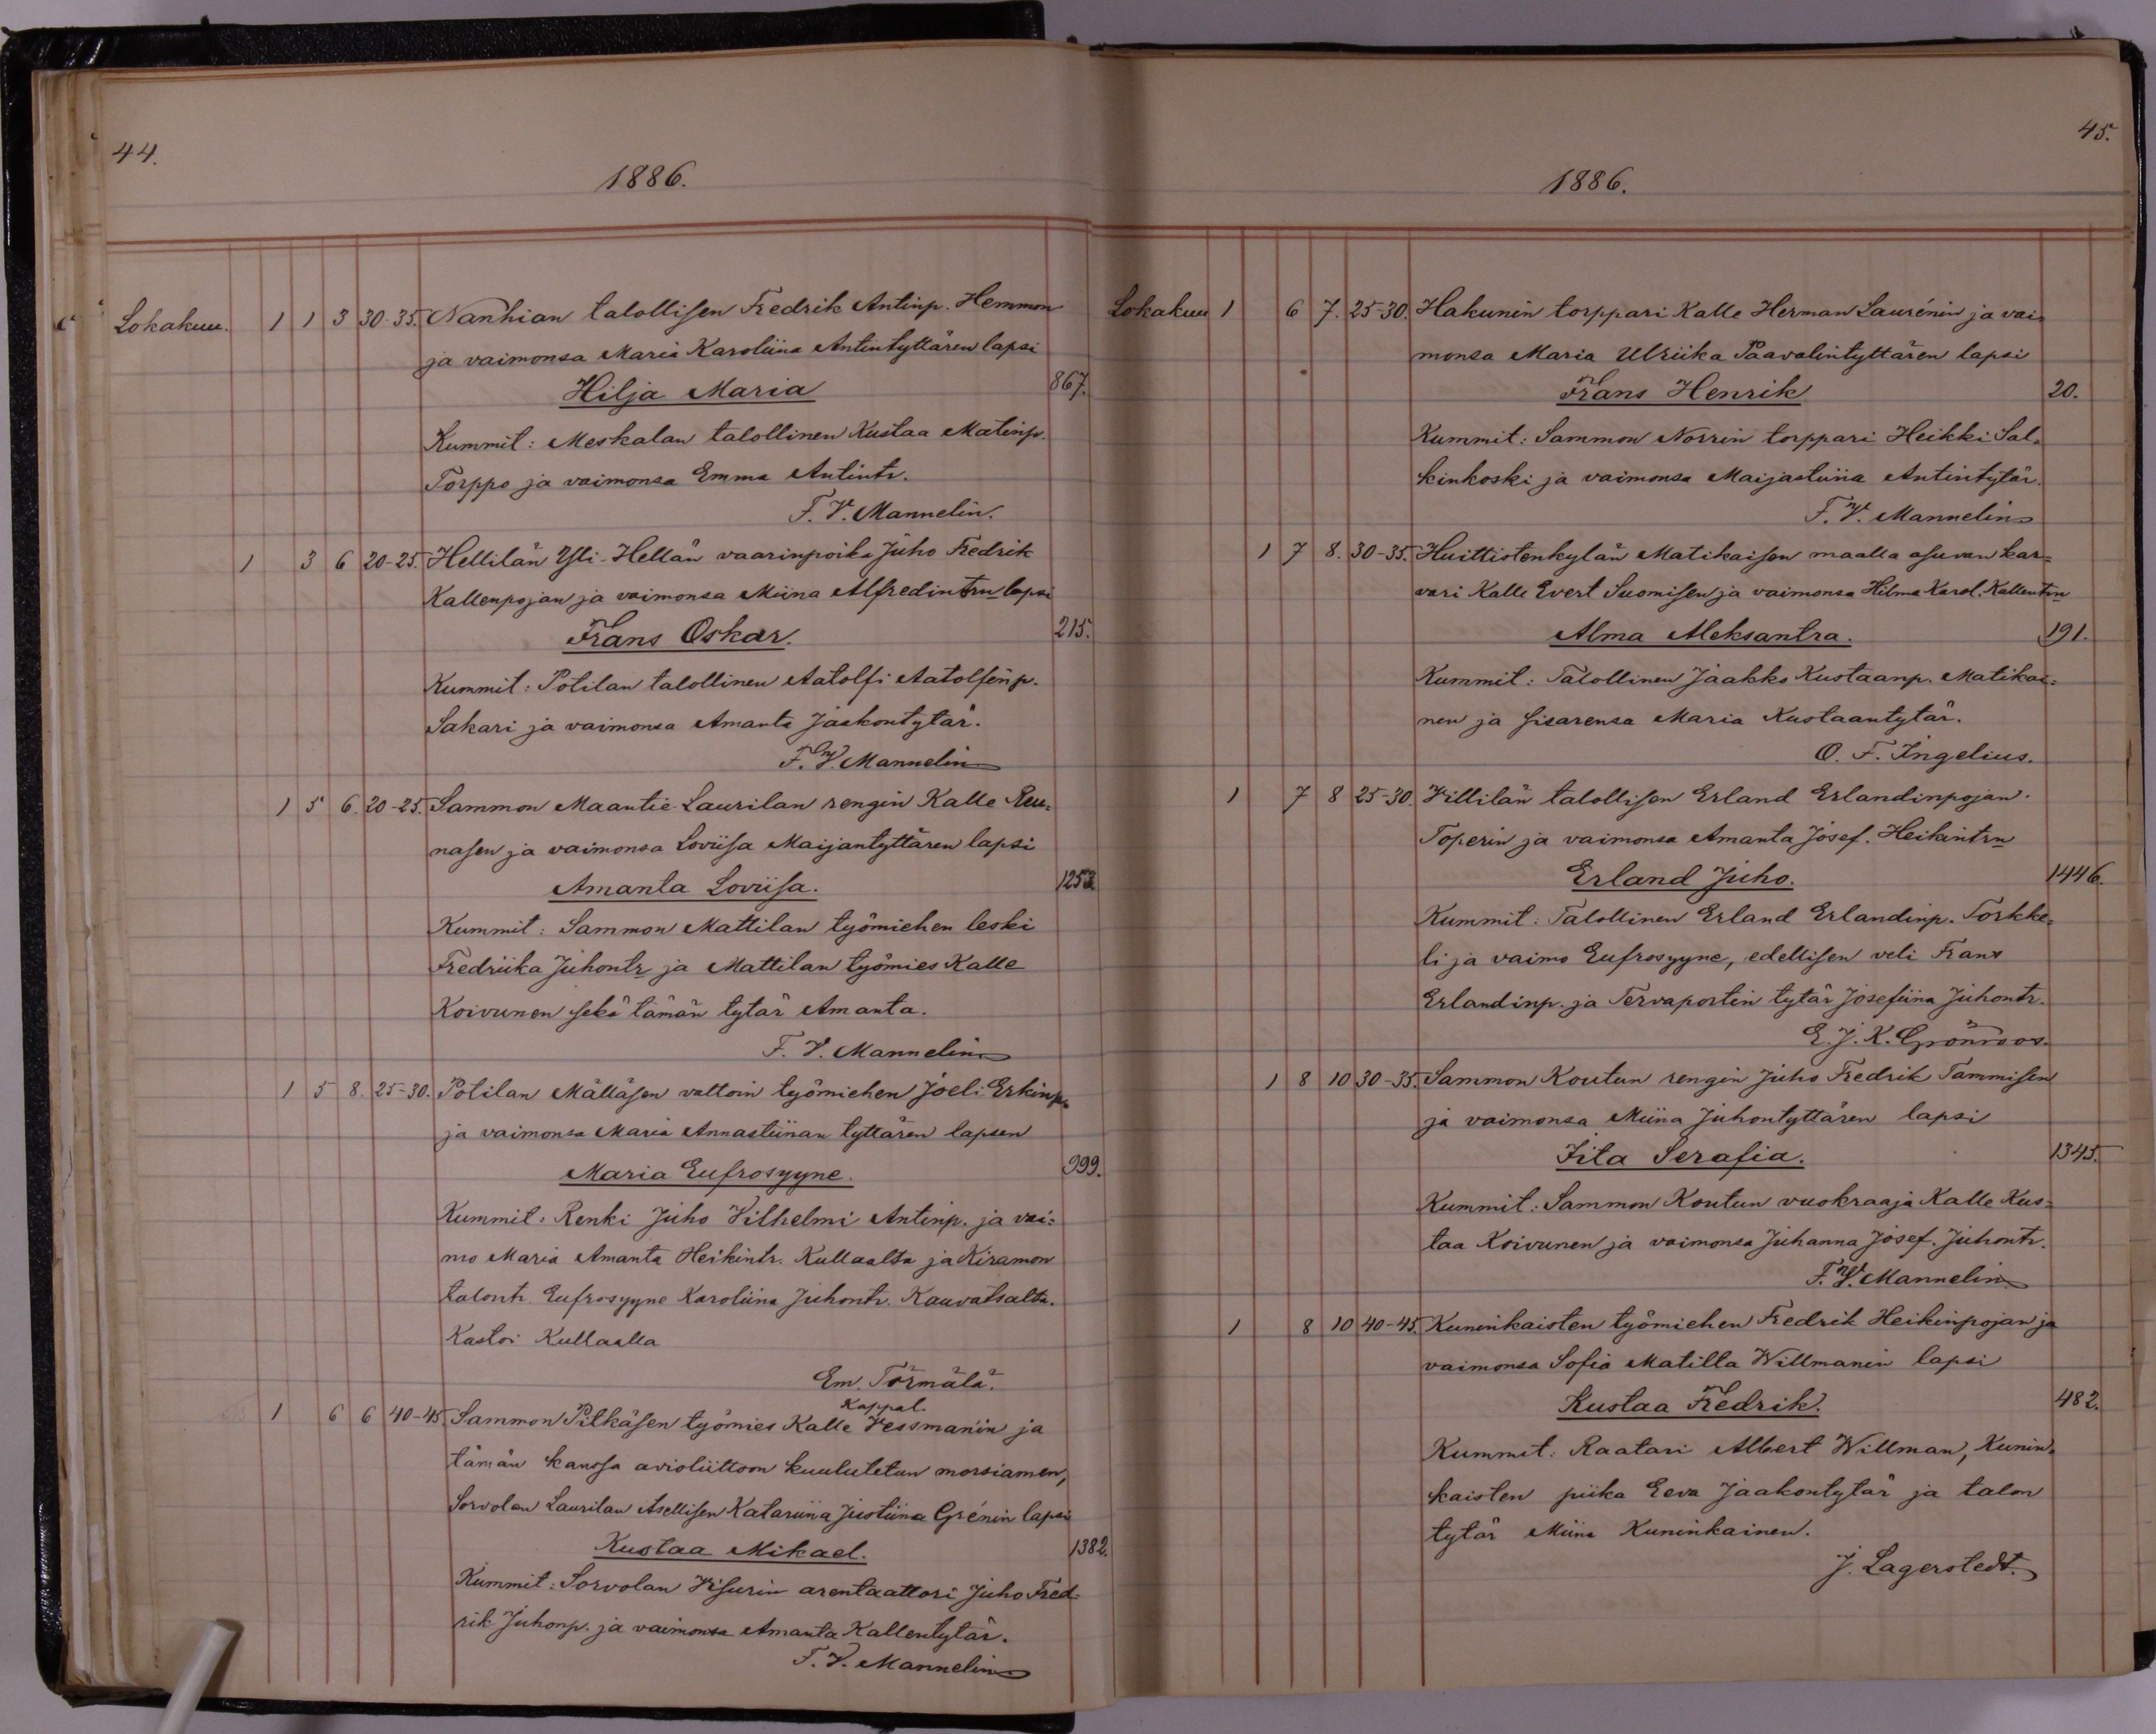 44.
1886.
Lokakuu. 1 1 3 30-35. Nanhian talollisen Fredrik Antinp. Hemmon
ja vaimonsa Maria Karoliina Antintyttären lapsi
Hilja Maria 867.
Kummit: Meskalan talollinen Kustaa Matinp.
Torppo ja vaimonsa Emma Antintr.
F. V. Mannelin.
1 3 6 20-25. Hellilän Yli-Hellän vaarinpoika Juho Fredrik
Kallenpojan ja vaimonsa Miina Alfredintrn lapsi
Frans Oskar. 215.
Kummit: Potilan talollinen Aatolfi Aatolfinp.
Sakari ja vaimonsa Amanta Jaakontytär.
F. V. Mannelin
1 5 6. 20-25. Sammon Maantie-Laurilan rengin Kalle Reu=
nasen ja vaimonsa Loviisa Maijantyttären lapsi
Amanta Loviisa. 1253
Kummit: Sammon Mattilan työmiehen leski
Fredriika Juhontr ja Mattilan työmies Kalle
Koivunen sekä tämän tytär Amanta.
F. V. Mannelin
1 5 8. 25-30. Potilan Mälläsen valtoin työmiehen Joeli Erkinp.
ja vaimonsa Maria Annastiinan tyttären lapsen
Maria Eufrosyyne. 999.
Kummit: Renki Juho Vilhelmi Antinp. ja vai=
mo Maria Amanta Heikintr. Kullaalta ja Kiramon
talontr. Eufrosyyne Karoliina Juhontr. Kauvatsalta.
Kastoi Kullaalla
Em. Törmälä.
Kappal.
1 6 6 40-45 Sammon Pitkäsen työmies Kalle Vessmanin ja
tämän kanssa avioliittoon kuulutetun morsiamen,
Sorvolan Laurilan itsellisen Katariina Justiina Grénin lapsi
Kustaa Mikael. 1382.
Kummit: Sorvolan Visurin arentaattori Juho Fred=
rik Juhonp. ja vaimonsa Amanta Kallentytär.
F. V. Mannelin
45.
1886.
Lokakuu 1 6 7. 25-30. Hakunin torppari Kalle Herman Laurénin ja vai=
monsa Maria Ulriika Paavalintyttären lapsi
Frans Henrik 20.
Kummit: Sammon Norrin torppari Heikki Sal=
kinkoski ja vaimonsa Maijastiina Antintytär.
F. V. Mannelin
1 7 8. 30-35. Huittistenkylän Matikaisen maalla asuvan kar=
vari Kalle Evert Suomisen ja vaimonsa Hilma Karol. Kallentrn
Alma Aleksantra. 191.
Kummit: Talollinen Jaakko Kustaanp. Matikai=
nen ja sisarensa Maria Kustaantytär.
O. F. Ingelius.
1 7 8 25-30. Villilän talollisen Erland Erlandinpojan
Toperin ja vaimonsa Amanta Josef. Heikintrn
Erland Juho. 1446.
Kummit: Talollinen Erland Erlandinp. Torkke=
li ja vaimo Eufrosyyne, edellisen veli Frans
Erlandinp. ja Tervaportin tytär Josefiina Juhontr.
E. J. K. Grönroos.
1 8 10 30-35. Sammon Koutun rengin Juho Fredrik Tammisen
ja vaimonsa Miina Juhontyttären lapsi
Iita Serafia. 1345.
Kummit: Sammon Koutun vuokraaja Kalle Kus=
taa Koivunen ja vaimonsa Juhanna Josef. Juhontr.
F. V. Mannelin
1 8 10 40-45. Kuninkaisten työmiehen Fredrik Heikinpojan ja
vaimonsa Sofia Matilta Willmanin lapsi
Kustaa Fredrik. 482.
Kummit: Raatari Albert Willman, Kunin=
kaisten piika Eeva Jaakontytär ja talon
tytär Miina Kuninkainen.
J. Lagerstedt.